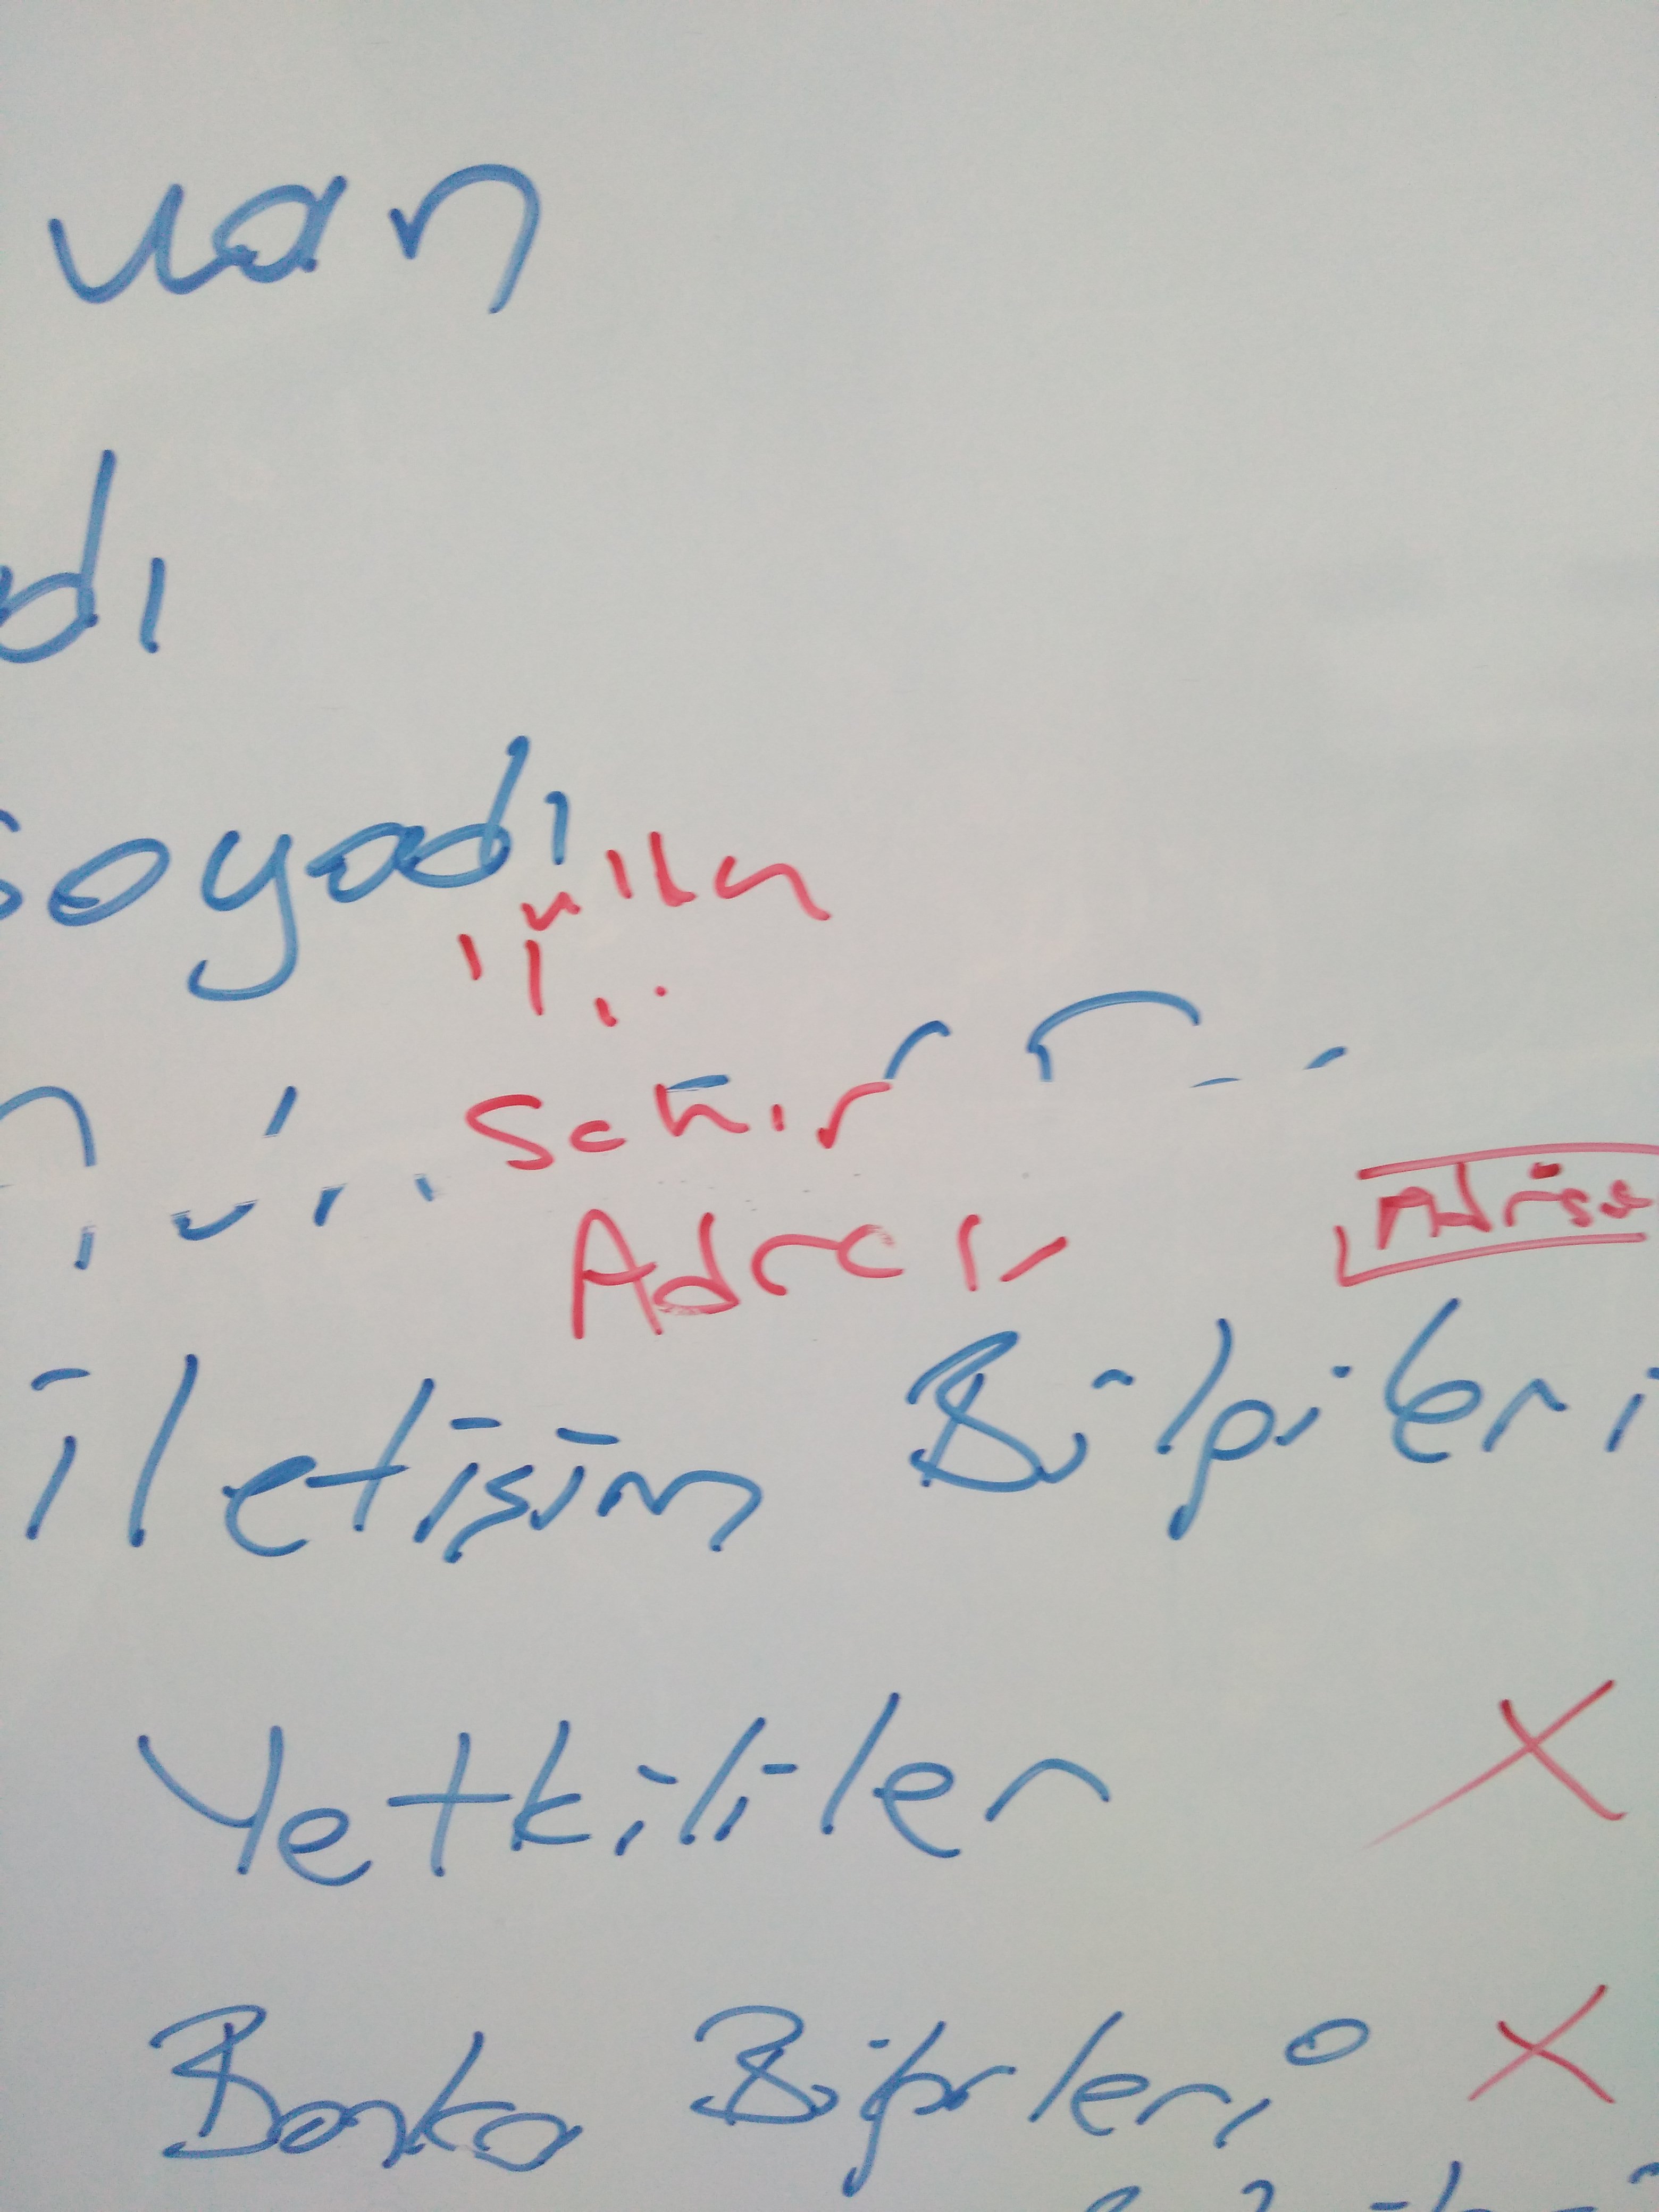 uan
dı
soyadı
ülke
Şehir
Adres
Adres
İletişim Bilgileri
Yetkililer X
Banka Bilgileri X